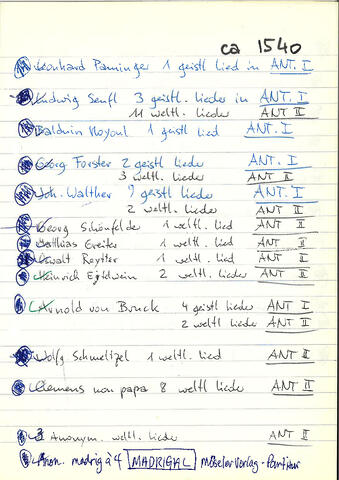 ca 1540
Leonhard Paminger 1 geistl lied in ANT. I
Ludwig Senfl 3 geistl. lieder in ANT. I
11 weltl. lieder ANT II
Balduin Hoyoul 1 geistl lied ANT. I
Georg Forster 2 geistl lieder ANT. I
3 weltl. lieder ANT II
Joh. Walther 9 geistl lieder ANT. I
2 weltl. lieder ANT II
Georg Schönfelder 1 weltl. lied ANT II
Matthias Greiter 1 weltl. lied ANT II
Oswalt Reytter 1 weltl. lied ANT II
Heinrich 2 weltl. lieder ANT II
Arnold von Bruck 4 geistl lieder ANT I
2 weltl lieder ANT II
Wolfg Schmeltzel 1 weltl. lied ANT II
Clemens non papa 8 weltl lieder ANT II
3 Anonym. weltl. lieder ANT II
Anon. madrig à 4 MADRIGAL möseler verlag - Partitur